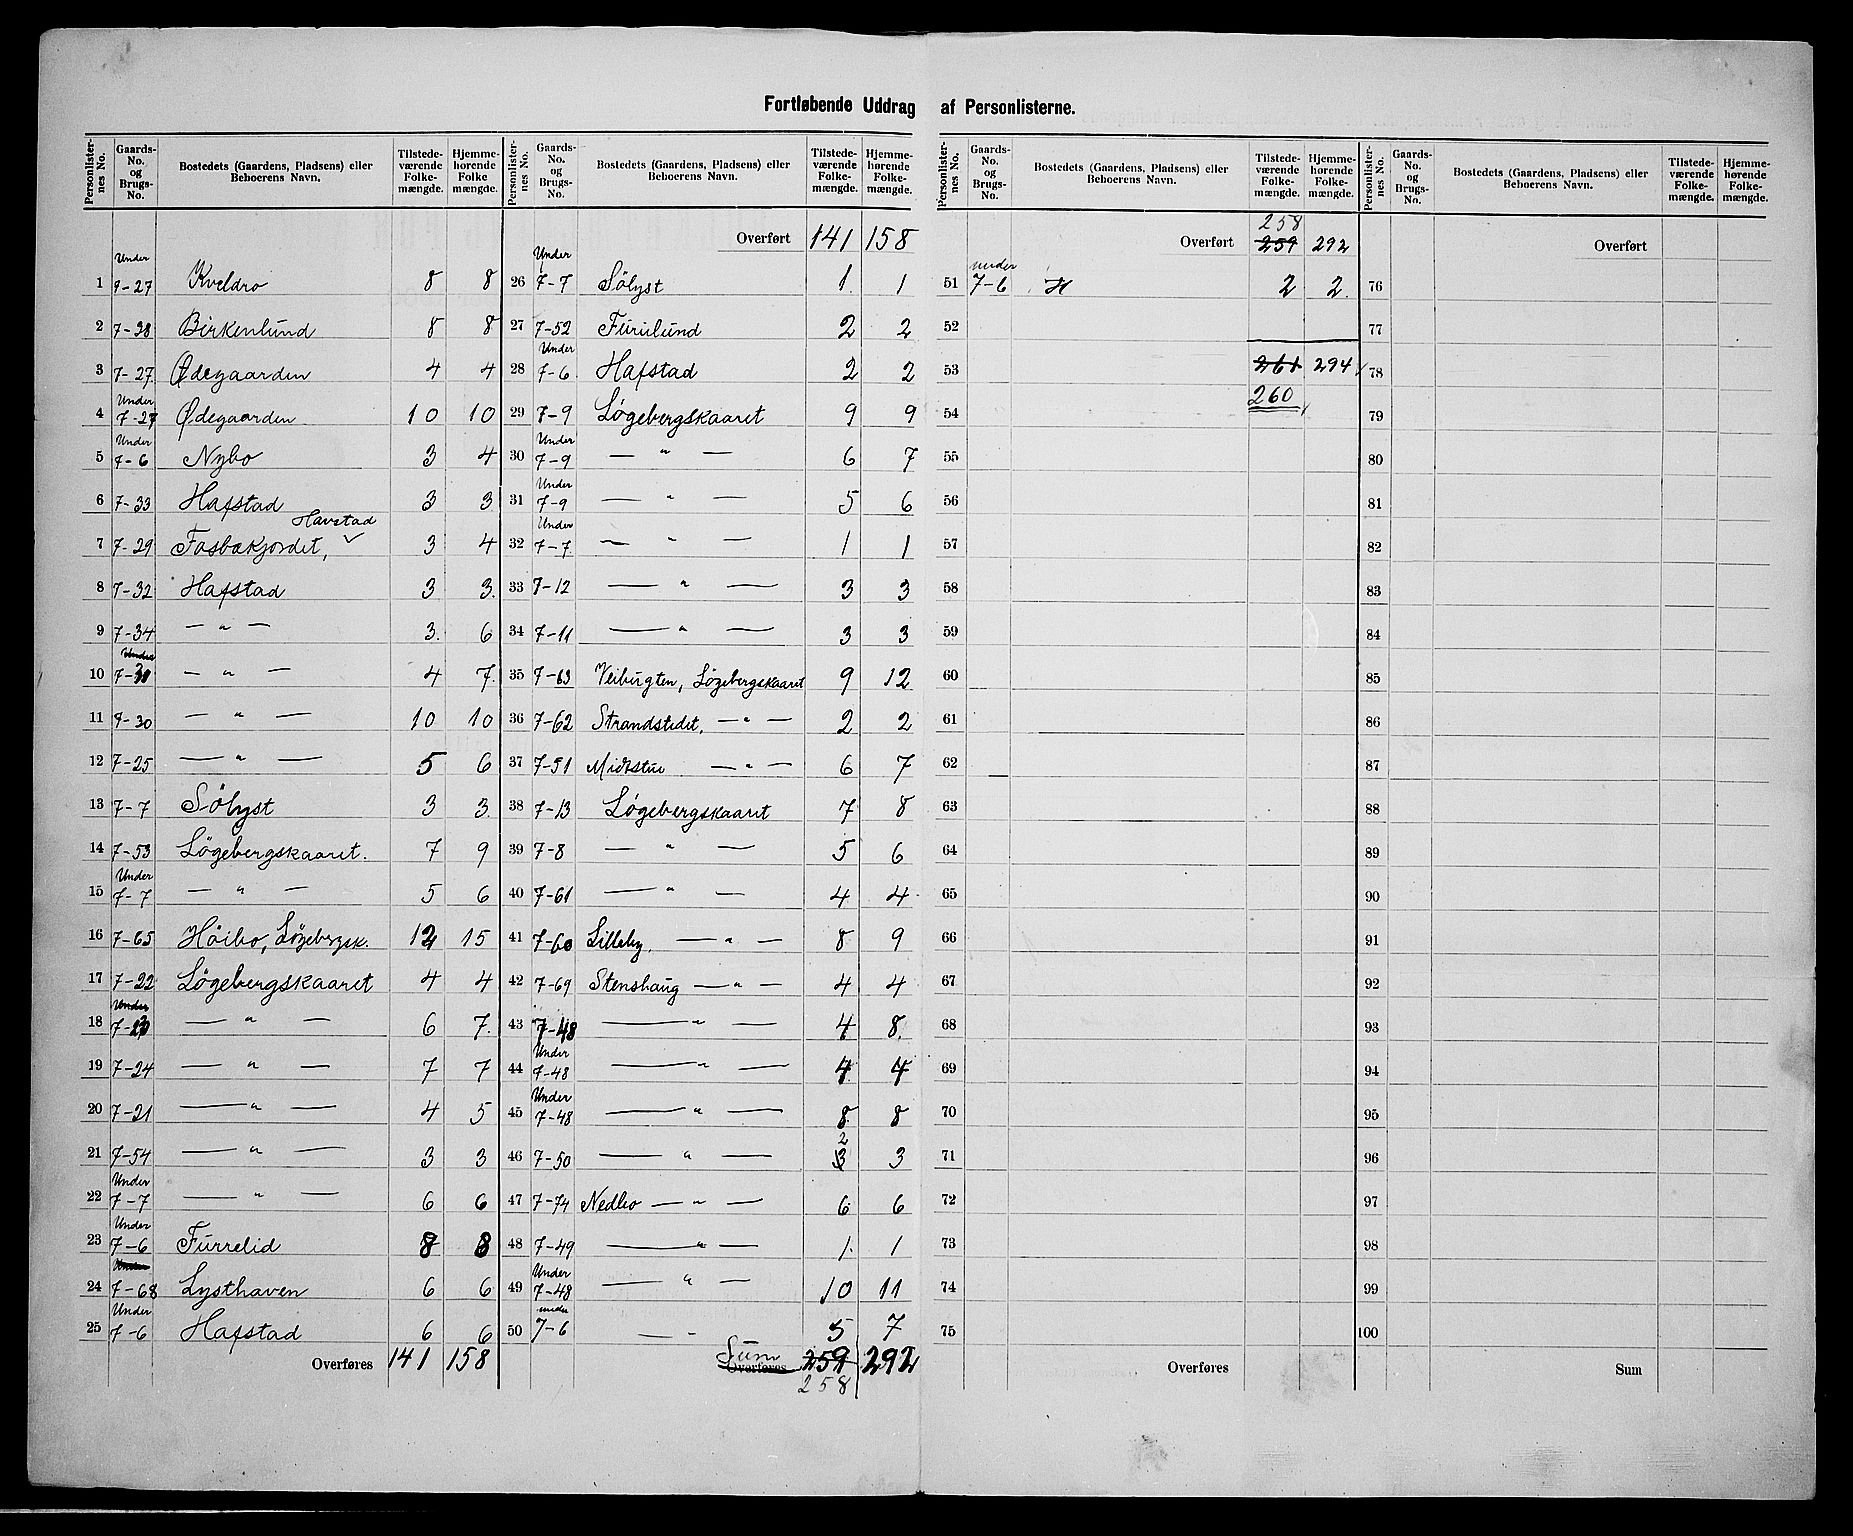 Fortløbende Uddrag af Personlisterne.
Personlisternes No. | Gaards-No. og Brugs-No. | Bostedets (Gaardens, Pladsens) eller Beboerens Navn. | Tilstedeværende Folkemængde. | Hjemmehørende Folkemængde.
1 | Under 7-27 | Kveldro | 8 | 8
2 | 7-38 | Birkenlund | 8 | 8
3 | 7-27 | Ødegaarden | 4 | 4
4 | Under 7-27 | Ødegaarden | 10 | 10
5 | Under 7-6 | Nybo | 3 | 4
6 | 7-33 | Hafstad | 3 | 3
7 | 7-29 | Fosbækjordet, Havstad | 3 | 4
8 | 7-32 | Hafstad | 3 | 3.
9 | 7-34 | — " — | 3. | 6
10 | Under 7-31 | — " — | 4 | 7.
11 | 7-30 | — " — | 10 | 10
12 | 7-25 | — " — | 5 | 6
13 | 7-7 | Sölyst | 3 | 3.
14 | 7-53 | Løgebergskaaret. | 7 | 9
15 | Under 7-7 | — " — | 5 | 6
16 | 7-65 | Höibo, Løgebergsk. | 12 | 15
17 | 7-22 | Løgebergskaaret | 4 | 4
18 | Under 7-23 | — " — | 6 | 7.
19 | 7-24 | — " — | 7 | 7
20 | 7-21 | — " — | 4 | 5
21 | 7-54 | — " — | 3 | 3
22 | Under 7-7 | — " — | 6 | 6
23 | Under 7-6 | Furrelid | 8 | 8
24 | Under 7-68 | Lysthaven | 6 | 6
25 | Under 7-6 | Hafstad | 6 | 6
Overføres | 141 | 158
Personlisternes No. | Gaards-No. og Brugs-No. | Bostedets (Gaardens, Pladsens) eller Beboerens Navn. | Tilstedeværende Folkemængde. | Hjemmehørende Folkemængde.
Overført | 141 | 158
26 | Under 7-7 | Sölyst | 1. | 1
27 | 7-52 | Furulund | 2 | 2
28 | Under 7-6 | Hafstad | 2 | 2
29 | 7-9 | Løgebergskaaret | 9 | 9
30 | Under 7-9 | — " — | 6 | 7
31 | Under 7-9 | — " — | 5 | 6
32 | Under 7-7 | — " — | 1 | 1
33 | 7-12 | — " — | 3 | 3
34 | 7-11 | — " — | 3 | 3
35 | 7-63 | Veibugten, Løgebergskaaret | 9 | 12
36 | 7-62 | Strandstedet, — " — | 2 | 2
37 | 7-51 | Midtstue — " — | 6 | 7
38 | 7-13 | Løgebergskaaret | 7 | 8
39 | 7-8 | — " — | 5 | 6
40 | 7-61 | — " — | 4 | 4
41 | 7-60 | Lilleby, — " — | 8 | 9
42 | 7-69 | Stenshaug — " — | 4 | 4
43 | 7-48 | — " — | 4 | 8.
44 | Under 7-48 | — " — | 4 | 4
45 | Under 7-48 | — " — | 8 | 8
46 | 7-50 | — " — | 3 2 | 3
47 | 7-74 | Nedbo — " — | 6 | 6
48 | 7-49 | — " — | 1. | 1
49 | Under 7-48 | — " — | 10 | 11
50 | under 7-6 | — " — | 5 | 7
Overføres Sum | 259 258 | 292
Personlisternes No. | Gaards-No. og Brugs-No. | Bostedets (Gaardens, Pladsens) eller Beboerens Navn. | Tilstedeværende Folkemængde. | Hjemmehørende Folkemængde.
Overført | 258 259 | 292
51 | under 7-6 | H | 2 | 2.
52
53 | 261 | 294
54 | 260
55
56
57
58
59
60
61
62
63
64
65
66
67
68
69
70
71
72
73
74
75
Overføres
Personlisternes No. | Gaards-No. og Brugs-No. | Bostedets (Gaardens, Pladsens) eller Beboerens Navn. | Tilstedeværende Folkemængde. | Hjemmehørende Folkemængde.
Overført
76
77
78
79
80
81
82
83
84
85
86
87
88
89
90
91
92
93
94
95
96
97
98
99
100
Sum